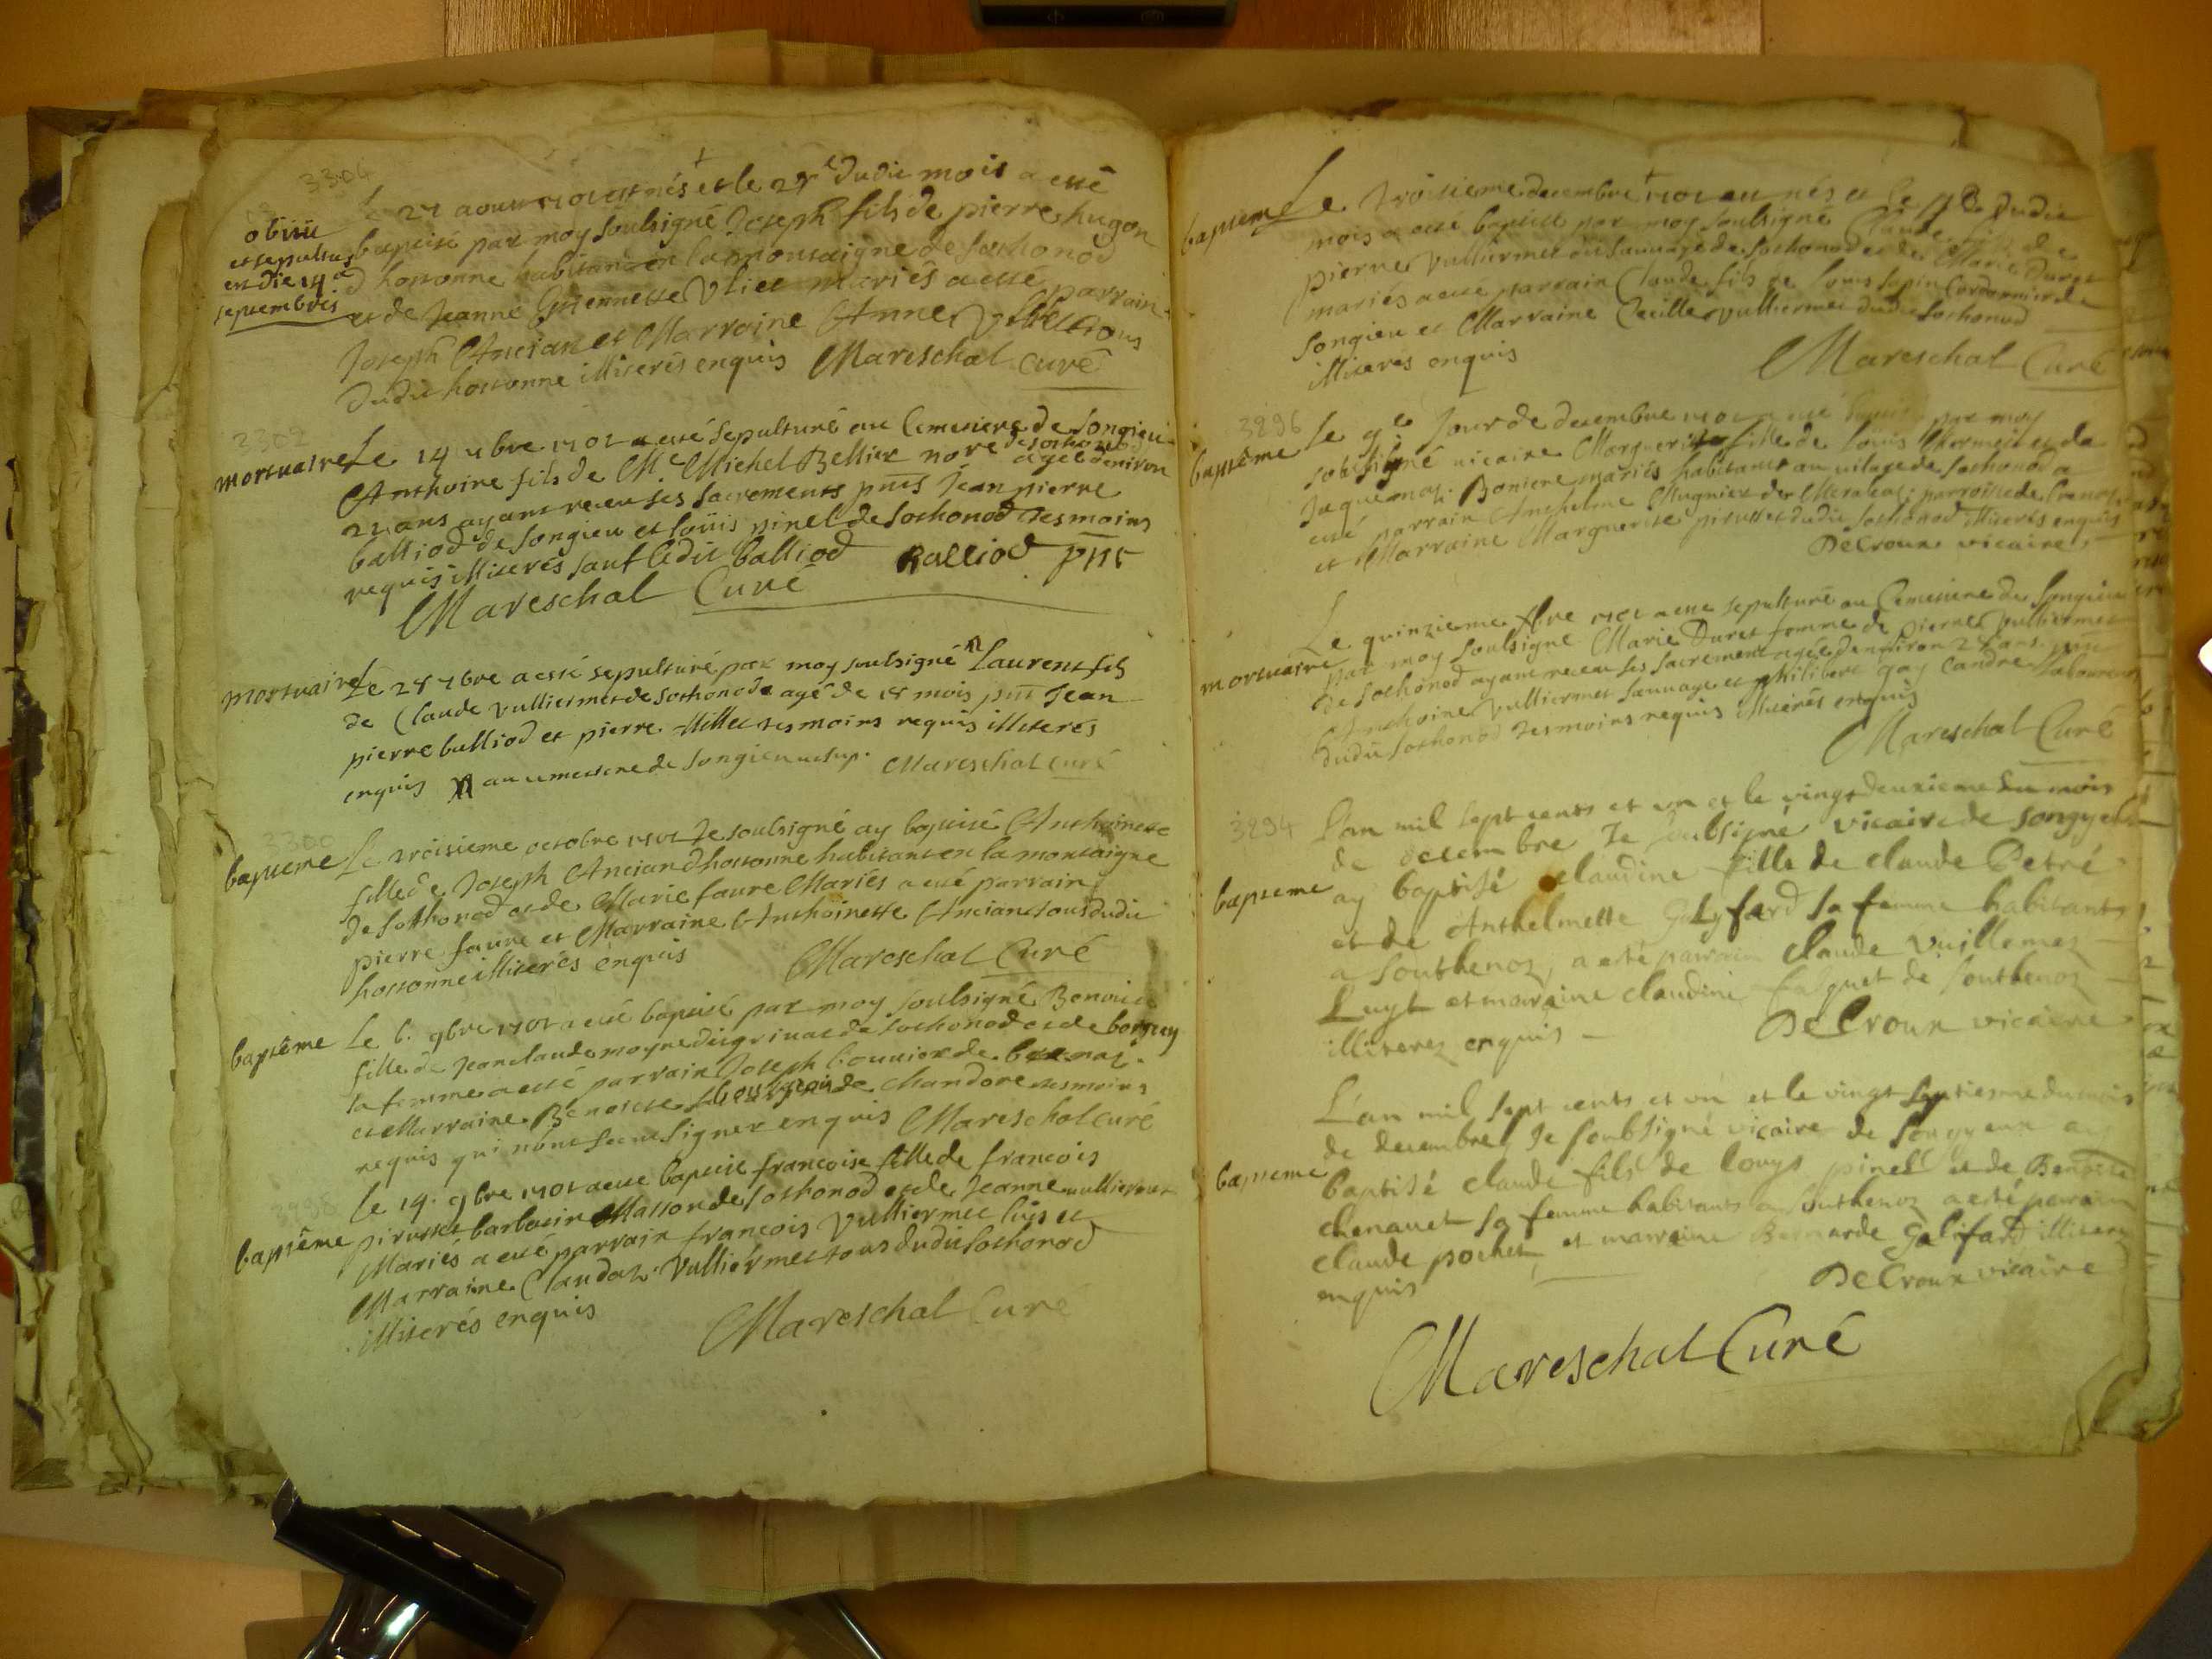 3304
obiit
et sepultus
est die 14a
septembris
Le 27 aoust 1701 est nés et le 28e dudit mois a esté
baptisé par moy soubsigné Joseph fils de pierre hugon
d hostonne habitant en la montaigne de sothonod
et de Jeanne Guiennette Vliet mariés a esté parrain
Joseph Ancian et Marraine Anne tous
dudit hostonne illiterés enquis Mareschal Curé
3302
mortuaire Le 14 7bre 1701 a esté sepulturé au Cemetiere de Songieu
Anthoine fils de Me Michel Bellier nore de sothonod agé denviron
22 ans ayant receu ses sacrements pnts Jean pierre
balliod de songieu et loüis pinel de sothonod tesmoins
requis illiterés sauf ledit balliod Balliod pnt
Mareschal Curé
mortuaire Le 28 7bre a esté sepulturé par moy soubsigné Laurent fils
de Claude vulliermet de sothonod agé de 18 mois pnt Jean
pierre balliod et pierre Millet tesmoins requis illiteres
enquis au cemetiere de songieu Mareschal Curé
3300
bapteme Le troisieme octobre 1701 Je soubsigné ay baptisé Anthoinette
fille de Joseph Ancian d hostonne habitant en la montaigne
de sothonod et de Marie faure Mariés a esté parrain
pierre faure et Marraine Anthoinette Ancian tous dudit
hostonne illiterés enquis Mareschal Curé
baptême Le 6. 9bre 1701 a esté baptisé par moy soubsigné Benoite
fille de Jean claude moyne de sothonod et de
sa femme a esté parrain Joseph bouvier de
et Marraine Benoite de Chandore tesmoins
requis qui n'ont sceu signer enquis Mareschal Curé
3298
baptême Le 19. 9bre 1701 a esté baptisé francoise fille de francois
pirusset barbotin Masson de sothonod et de Jeanne vulliermet
Mariés a esté parrain francois Vulliermet luis et
Marraine Claudaz Vulliermet tous dudit sothonod
illiterés enquis Mareschal Curé
bapteme Le troisieme decembre 1701 est nés et le dudit
mois a esté baptisé par moy soubsigné Claude fils de
pierre Vulliermet dit sauvage de sothonod et de Marie Duret
mariés a esté parrain Claude fils de louis lupin Cordonnier de
Songieu et Marraine Cecille vulliermet dudit sothonod
illiteres enquis Mareschal Curé
3296
baptême Le 9e Jour de decembre 1701 a esté baptisé par moy
sobsigné vicaire Marguerite fille de loüis Chermet et de
Jaquemaz Boniere mariés habitants au vilage de sothonod a
esté parrain Anthelme Mugnier de parroisse de
et Marraine Marguerite pirusset dudit sothonod illiterés enquis
DeCroux vicaire
mortuaire Le quinzieme Xbre 1701 a esté sepulturé au Cemetiere de Songieu
par moy soubsigné Marie Duret femme de pierre Vulliermet
de sothonod ayant receu ses sacrements agée denviron 28 ans pnt
Anthoine Vulliermet sauvage et philibert gay Candre laboureur
dudit sothonod tesmoins requis illiterés enquis
Mareschal Curé
3294
bapteme L'an mil sept cents et vn et le vingt deuxieme du mois
de decembre Je soubsigné vicaire de songyeu
ay baptisé claudine fille de claude Petré
et de Anthelmette Galyfard sa femme habitants
a Southenoz, a esté parrain claude vuillemez
Luyt et maraine claudine falquet de Southenoz
illiterez enquis DeCroux vicaire
bapteme L'an mil sept cents et vn et le vingt septiesme du mois
de decembre Je soubsigné vicaire de Songyeux ay
baptisé claude fils de louys pinel et de Benoite
chenavet sa femme habitants a Southenoz a esté parain
claude pochet et marraine Bernarde Galifard illiterez
enquis DeCroux vicaire
Mareschal Curé